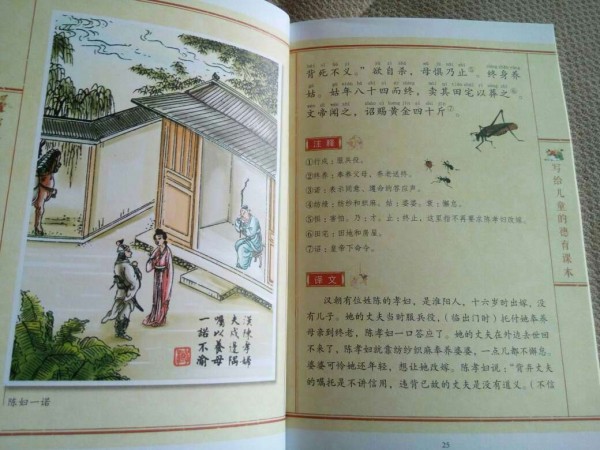 漢陳孝婦
夫戍邊隅
囑以養母
一諾不渝
陈妇一诺
背死不义。”欲自杀，母惧乃止⑤。终身养
姑。姑年八十四而终，卖其田宅以葬之⑥。
文帝闻之，诏赐黄金四十斤⑦。
注释
①行戍：服兵役。
②终养：奉养父母，养老送终。
③诺：表示同意、遵命的答应声。
④纺绩：纺纱和织麻。姑：婆婆。衰：懈怠。
⑤惧：害怕。乃：才。止：终止，这里指不再要求陈孝妇改嫁。
⑥田宅：田地和房屋。
⑦诏：皇帝下命令。
译文
汉朝有位姓陈的孝妇，是淮阳人，十六岁时出嫁，没
有儿子。她的丈夫当时服兵役，（临出门时）托付她奉养
母亲到终老，陈孝妇一口答应了。她的丈夫在外边去世回
不来了，陈孝妇就靠纺纱织麻奉养婆婆，一点儿都不懈怠。
婆婆可怜她还年轻，想让她改嫁。陈孝妇说：“背弃丈夫
的嘱托是不讲信用，违背已故的丈夫是没有道义。（不信
写给儿童的德育课本
25